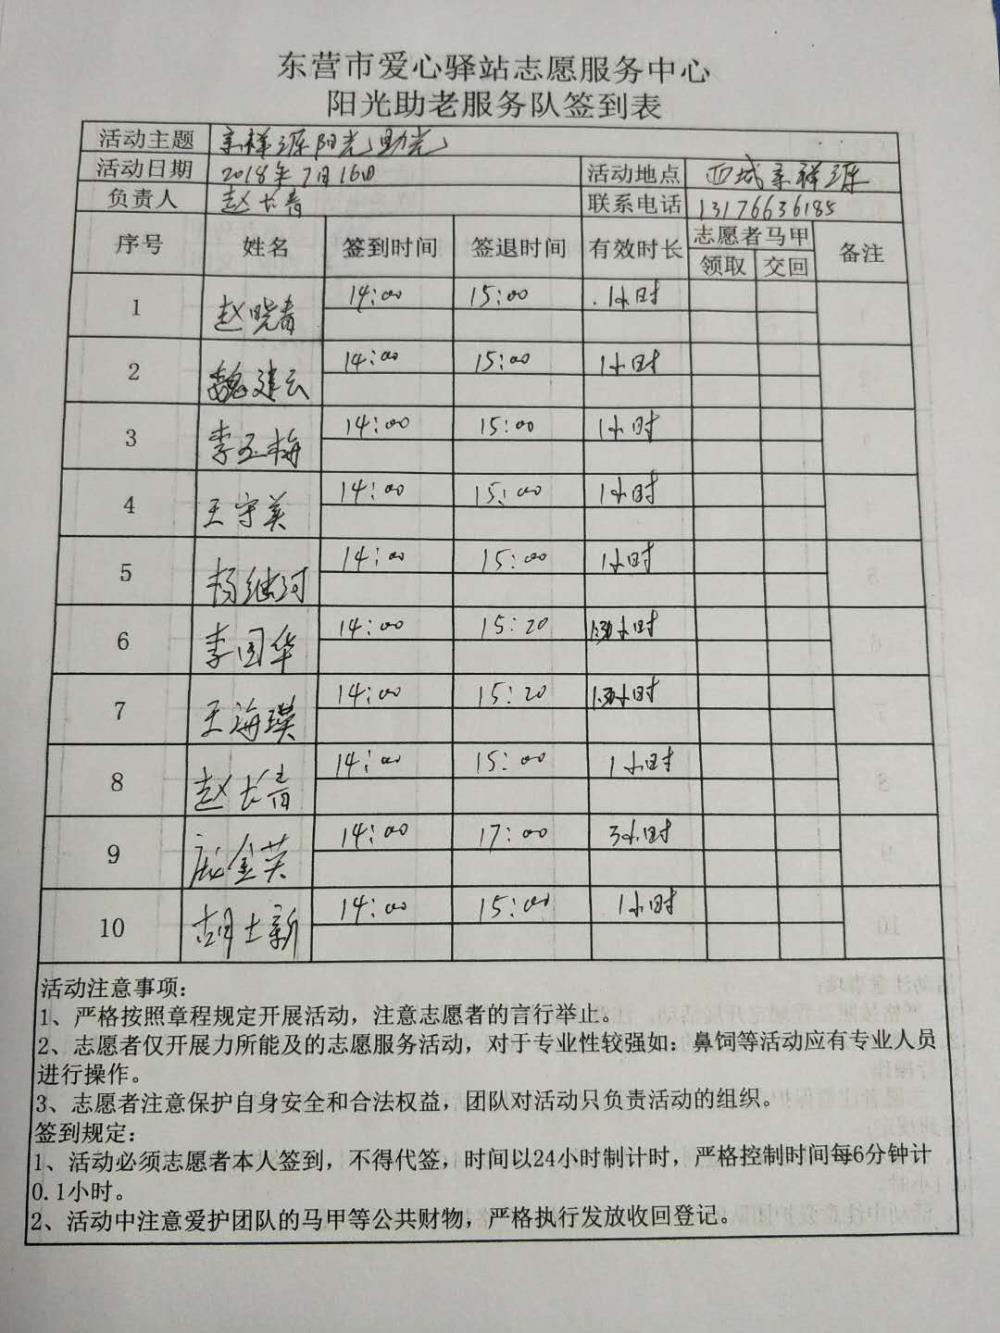 东营市爱心驿站志愿服务中心
阳光助老服务队签到表
活动主题 祥源阳光助老
活动日期 2018年7月16日 活动地点 西城 祥源
负责人 赵长青 联系电话 13176636185
序号 姓名 签到时间 签退时间 有效时长 志愿者马甲 备注
领取 交回
1 赵晓青 14:00 15:00 1小时
2 魏建云 14:00 15:00 1小时
3 李玉梅 14:00 15:00 1小时
4 王守英 14:00 15:00 1小时
5 杨继河 14:00 15:00 1小时
6 李国华 14:00 15:20 小时
7 王海瑛 14:00 15:20 小时
8 赵长青 14:00 15:00 1小时
9 庞金英 14:00 17:00 3小时
10 胡士新 14:00 15:00 1小时
活动注意事项：
1、严格按照章程规定开展活动，注意志愿者的言行举止。
2、志愿者仅开展力所能及的志愿服务活动，对于专业性较强如：鼻饲等活动应有专业人员
进行操作。
3、志愿者注意保护自身安全和合法权益，团队对活动只负责活动的组织。
签到规定：
1、活动必须志愿者本人签到，不得代签，时间以24小时制计时，严格控制时间每6分钟计
0.1小时。
2、活动中注意爱护团队的马甲等公共财物，严格执行发放收回登记。